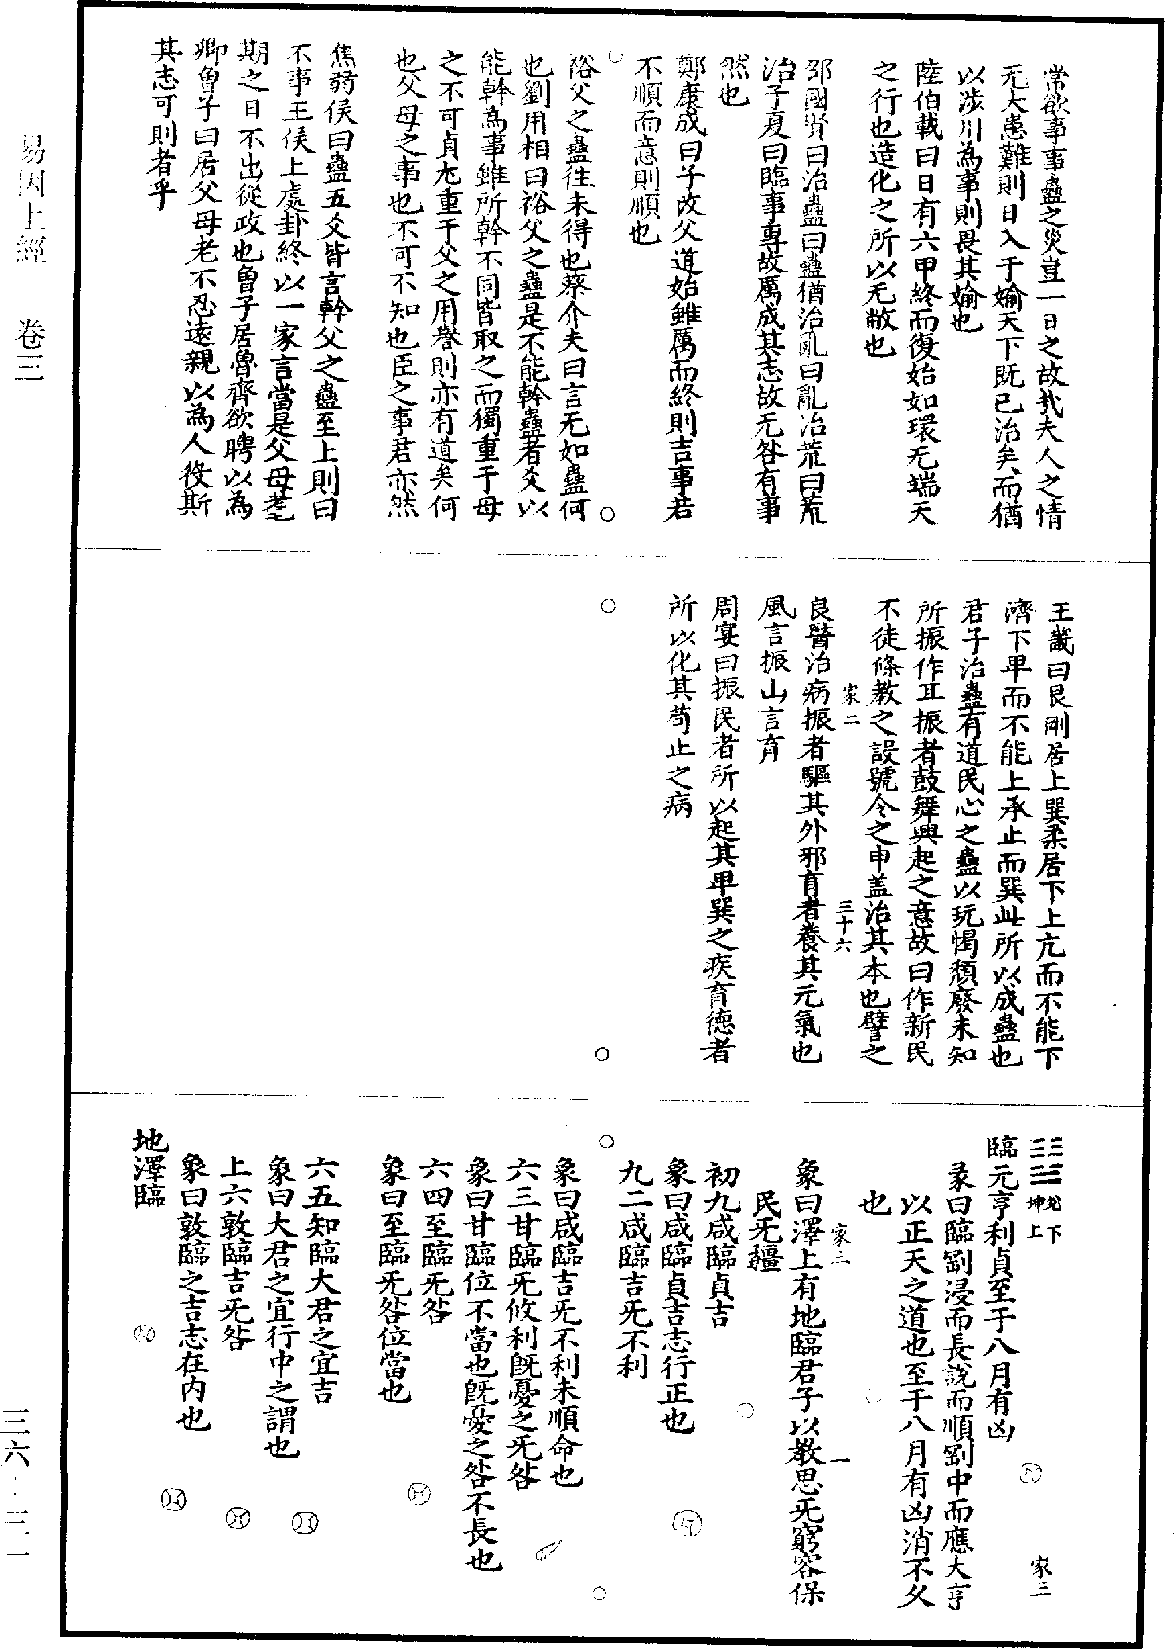 易因上經　卷三
常欲事事蠱之災豈一日之故哉夫人之情
无大患難則日入于媮天下既已治矣而猶
以涉川為事則畏其媮也
陸伯載曰日有六甲終而復始如環无端天
之行也造化之所以无敝也
邵國賢曰治蠱曰蠱猶治亂曰亂治荒曰荒
治子夏曰臨事專故厲成其志故无咎有事
然也
鄭康成曰子改父道始雖厲而終則吉事若
不順而意則順也
裕父之蠱往未得也蔡介夫曰言无如蠱何
也劉用相曰裕父之蠱是不能幹蠱者爻以
能幹為事雖所幹不同皆取之而獨重于母
之不可貞尤重于父之用譽則亦有道矣何
也父母之事也不可不知也臣之事君亦然
焦弱侯曰蠱五爻皆言幹父之蠱至上則曰
不事王侯上處卦終以一家言當是父母耄
期之日不出從政也魯子居魯齊欲聘以為
卿魯子曰居父母老不忍遠親以為人役斯
其志可則者乎
王畿曰艮剛居上巽柔居下上亢而不能下
濟下卑而不能上承止而巽此所以成蠱也
君子治蠱有道民心之蠱以玩愒頹廢未知
所振作耳振者鼓舞興起之意故曰作新民
不徒條教之設號令之申蓋治其本也譬之
家二　三十六
良醫治病振者驅其外邪育者養其元氣也
風言振山言育
周宴曰振民者所以起其卑巽之疾育德者
所以化其苟止之病
兌下
坤上
家三
臨元亨利貞至于八月有凶
彖曰臨剛浸而長說而順剛中而應大亨
以正天之道也至于八月有凶消不久
也
家三　一
象曰澤上有地臨君子以教思旡窮容保
民旡疆
初九咸臨貞吉
象曰咸臨貞吉志行正也
九二咸臨吉旡不利
象曰咸臨吉旡不利未順命也
六三甘臨旡攸利既憂之旡咎
象曰甘臨位不當也既憂之咎不長也
六四至臨旡咎
象曰至臨旡咎位當也
六五知臨大君之宜吉
象曰大君之宜行中之謂也
上六敦臨吉旡咎
象曰敦臨之吉志在內也
地澤臨
三六·三一